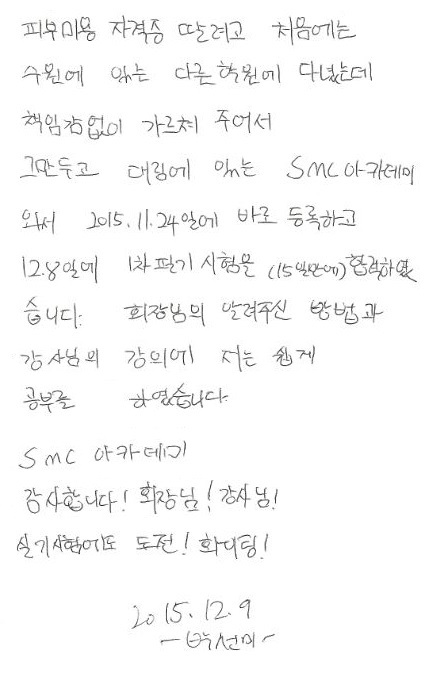 피부미용 자격증 딸려고 처음에는
수원에 있는 다른학원에 다녔는데
책임감없이 가르쳐 주어서
그만두고 대림에 있는 SMC아카데미
와서 2015.11.24일에 바로 등록하고
12.8일에 1차필기시험을 (15일만에)합격하였
습니다. 회장님의 알려주신 방법과
강사님의 강의에 저는 쉽게
공부를 하였습니다.
SMC 아카데미
감사합니다! 회장님! 강사님!
실기시험에도 도전! 화이팅!
2015.12.9
-박선미-